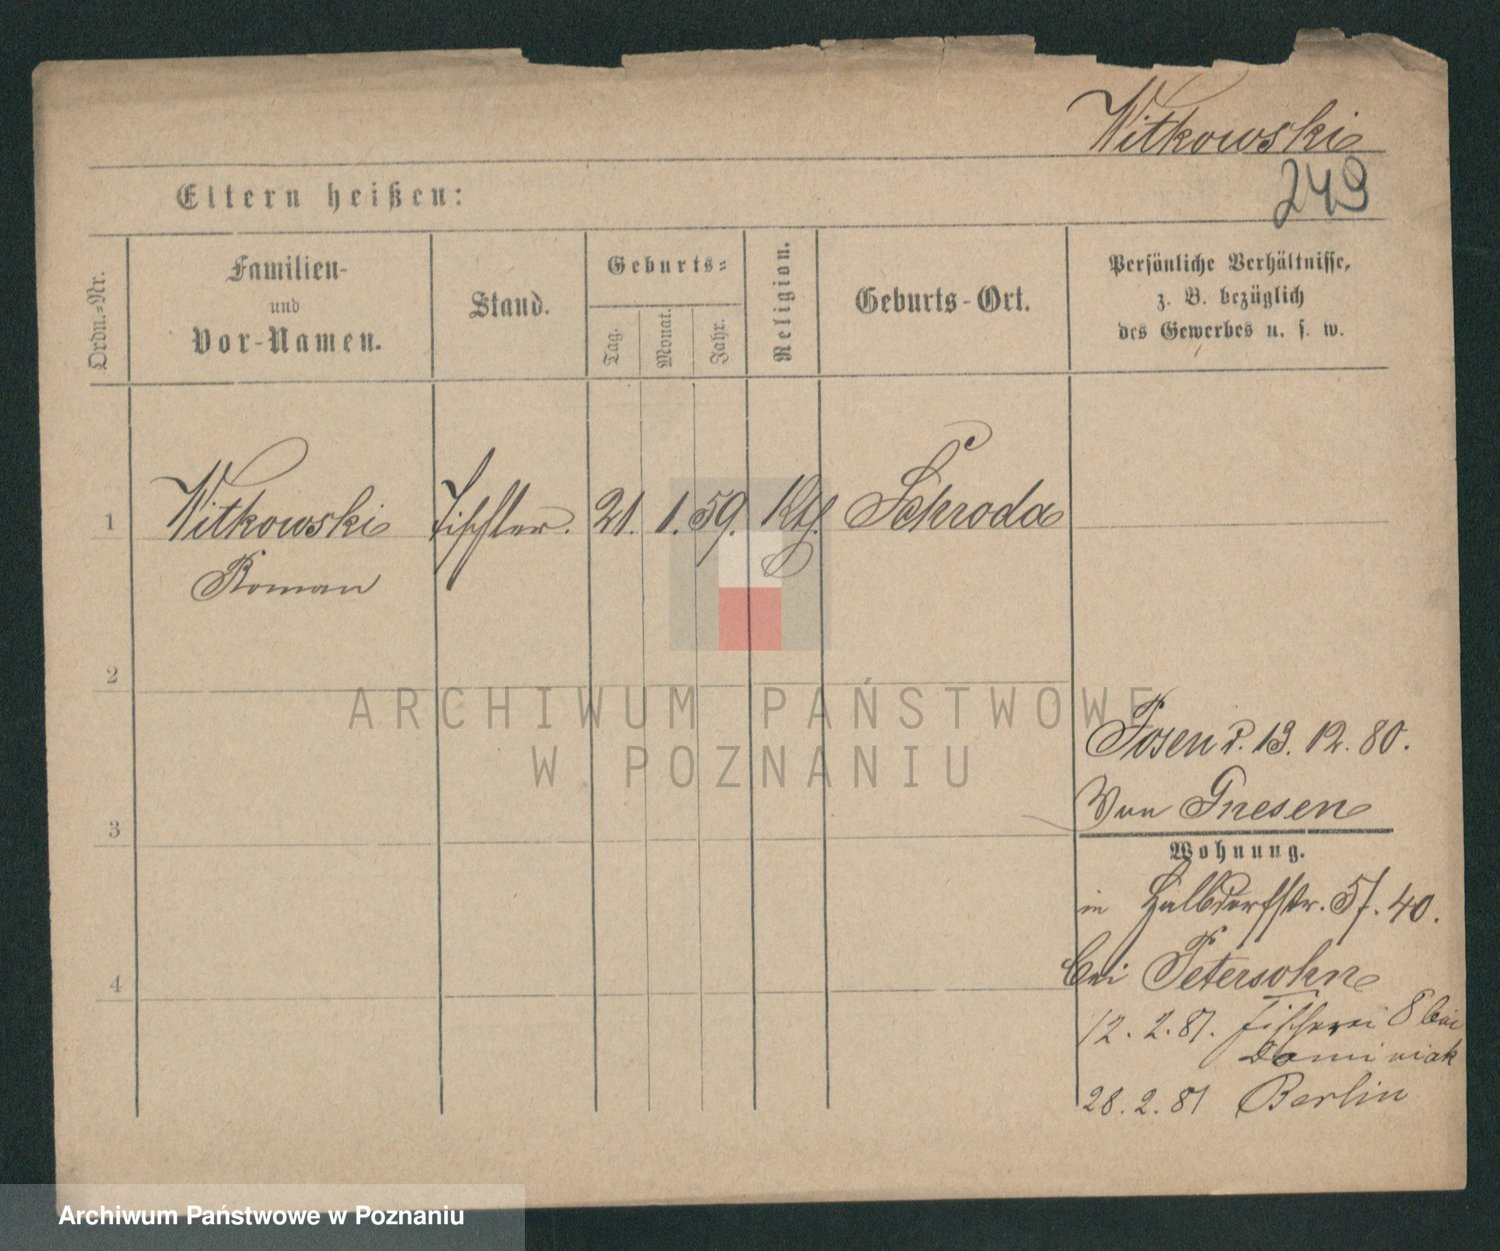 Witkowski
249
Eltern heißen:
Ordn.-Nr.
Familien-
und
Vor-Namen.
Stand.
Geburts-
Tag.
Monat.
Jahr.
Religion.
Geburts-Ort.
Persönliche Verhältnisse,
z. B. bezüglich
des Gewerbes u. s. w.
1 Witkowski Tischler. 21. 1. 59. Kth. Schroda
Roman
2
3
4
Posen P. 13. 12. 80.
Von Gnesen
Wohnung.
in Halbdorfstr. 5/. 40.
bei Petersohn
12. 2. 81. Fischerei 8 bei
Dominiak
28. 2. 81 Berlin
ARCHIWUM PAŃSTWOWE
W POZNANIU
Archiwum Państwowe w Poznaniu